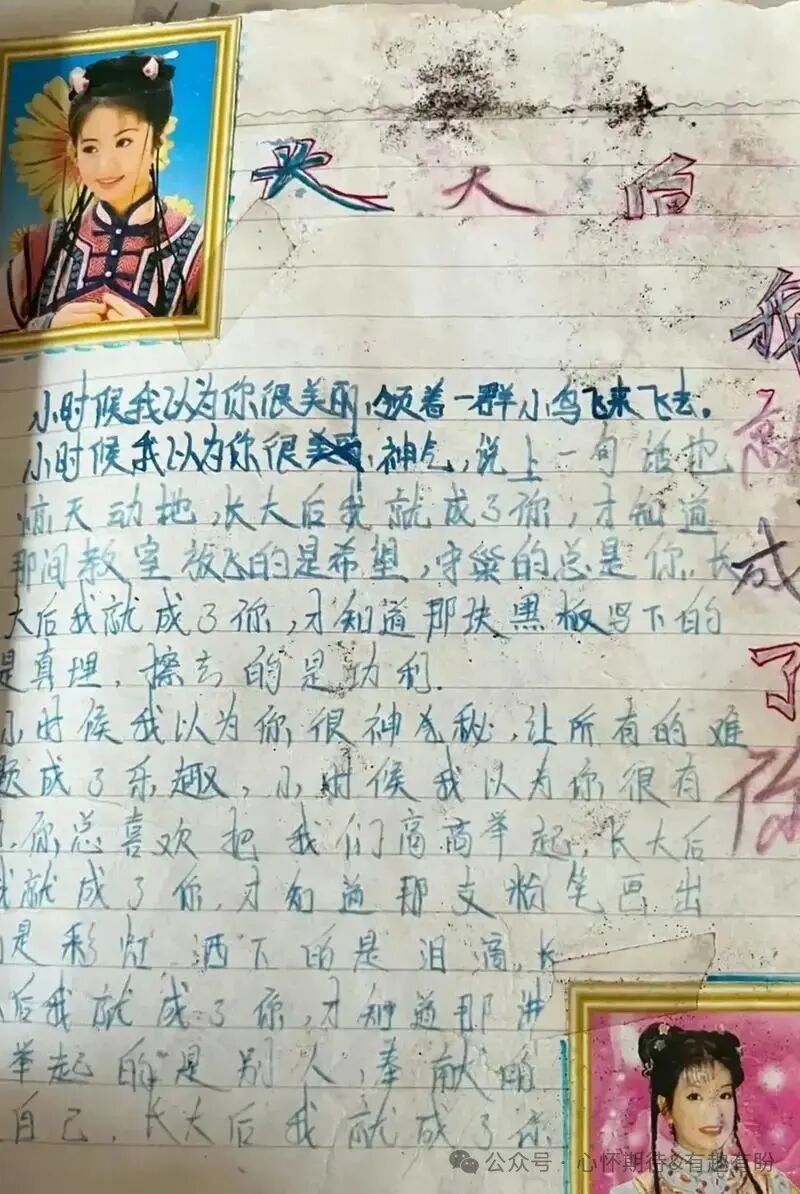 长大后
我就成了你
小时候我以为你很美丽,领着一群小鸟飞来飞去。
小时候我以为你很 神气,说上一句话也
惊天动地,长大后我就成了你,才知道
那间教室放飞的是希望,守巢的总是你,长
大后我就成了你,才知道那块黑板写下的
是真理,擦去的是功利.
小时候我以为你很神秘,让所有的难
题成了乐趣,小时候我以为你很有
,你总喜欢把我们高高举起,长大后
我就成了你,才知道那支粉笔画出
的是彩虹,洒下的是泪滴,长
后我就成了你,才知道那讲
举起的是别人,奉献的
自己,长大后我就成了你
公众号 · 心怀期待&有趣有盼